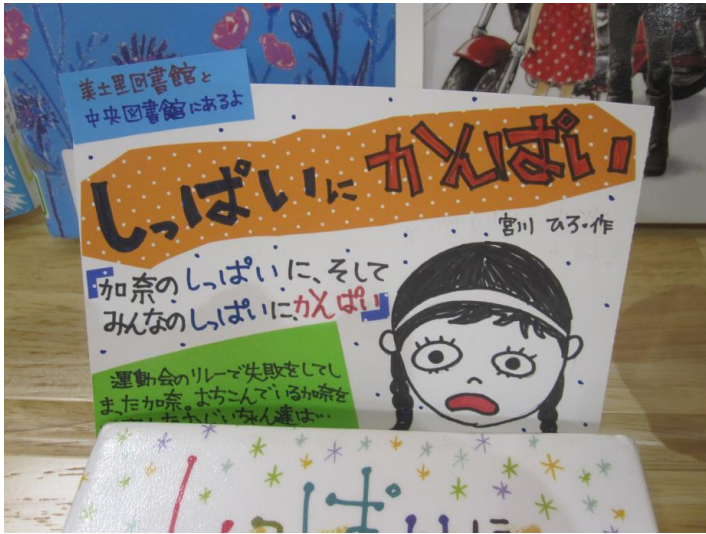 美土里図書館と
中央図書館にあるよ
しっぱいに かんぱい
宮川 ひろ・作
『加奈のしっぱいに、そして
みんなのしっぱいに、かんぱい』
運動会のリレーで失敗をしてし
まった加奈。おちこんでいる加奈を
おじいちゃん達は…